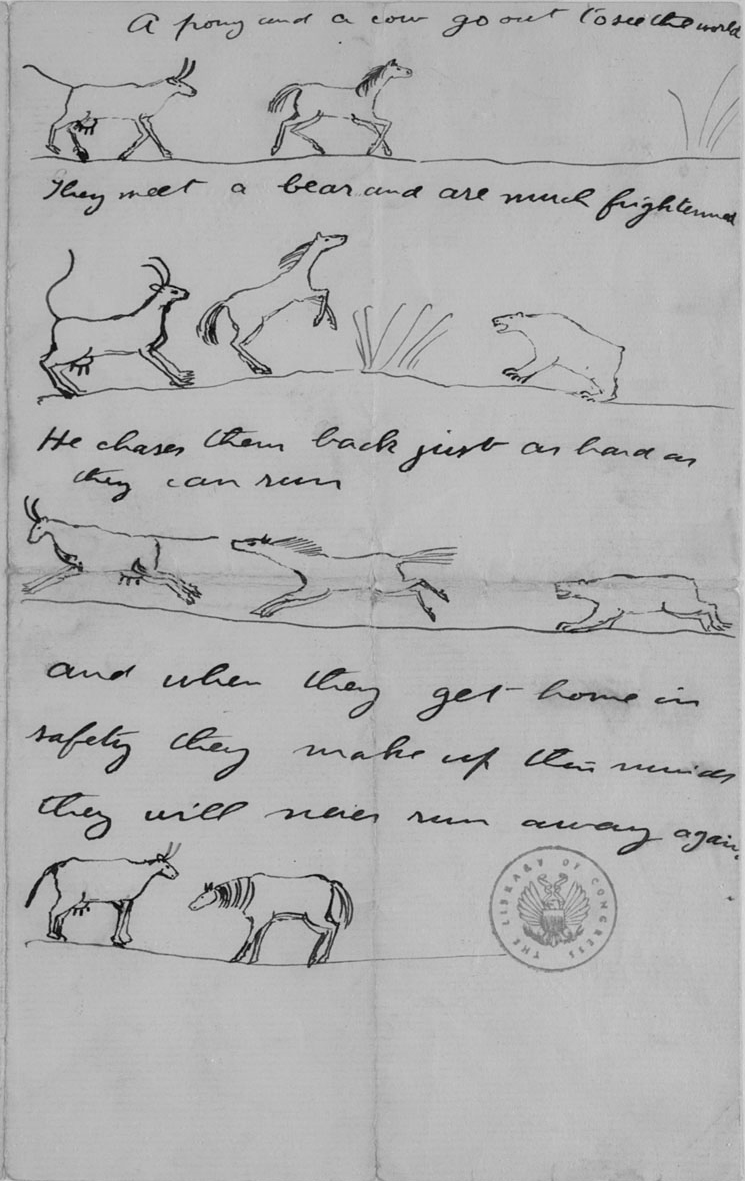 A pony and a cow go out to see the world
They meet a bear and are much frightened
He chases them back just as hard as
they can run
and when they get home in
safety they make up their minds
they will never run away again.
THE LIBRARY OF CONGRESS